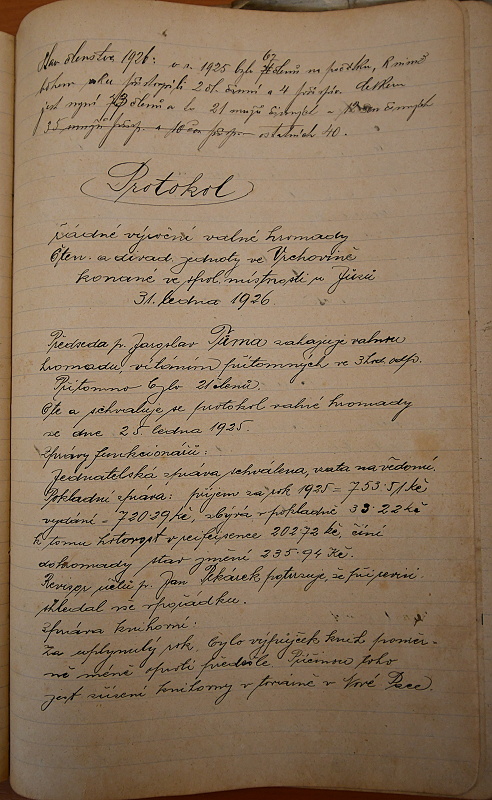 Stav členstva 1926: v r. 1925 bylo členů na počátku, K nimž
během roku přistoupili 2 čl. činní a 4 přisp. Celkem
jest nyní 73 členů a to 21 mužů činných a 12 žen činných
35 mužů přisp. a 10 žen přisp. ostatních 40.
Protokol
řádné výroční valné hromady
Čten. a divad. jednoty ve Vrchovině
konané ve spol. místnosti u Jírů
31. ledna 1926
Předseda p. Jaroslav Tůma zahajuje valnou
hromadu, vítáním přítomných ve 3 hod. odp.
Přítomno bylo 21 členů.
Čte a schvaluje se protokol valné hromady
ze dne 25. ledna 1925.
Zprávy funkcionářů:
Jednatelská zpráva schválena, vzata na vědomí.
Pokladní zpráva: příjem za rok 1925 = 753·51 Kč
vydání = 720·29 Kč, zbývá v pokladně 33·22 Kč
K tomu hotovost v 202·72 Kč, činí
dohromady stav jmění 235·94 Kč.
Revisor účtů p. Jan Pekárek potvrzuje, že při revisi
shledal vše v pořádku.
Zpráva knihovní:
Za uplynulý rok bylo výpůjček knih poměr-
ně méně oproti předešle. Příčinou toho
jest zřízení knihovny v továrně v Nové Pace.